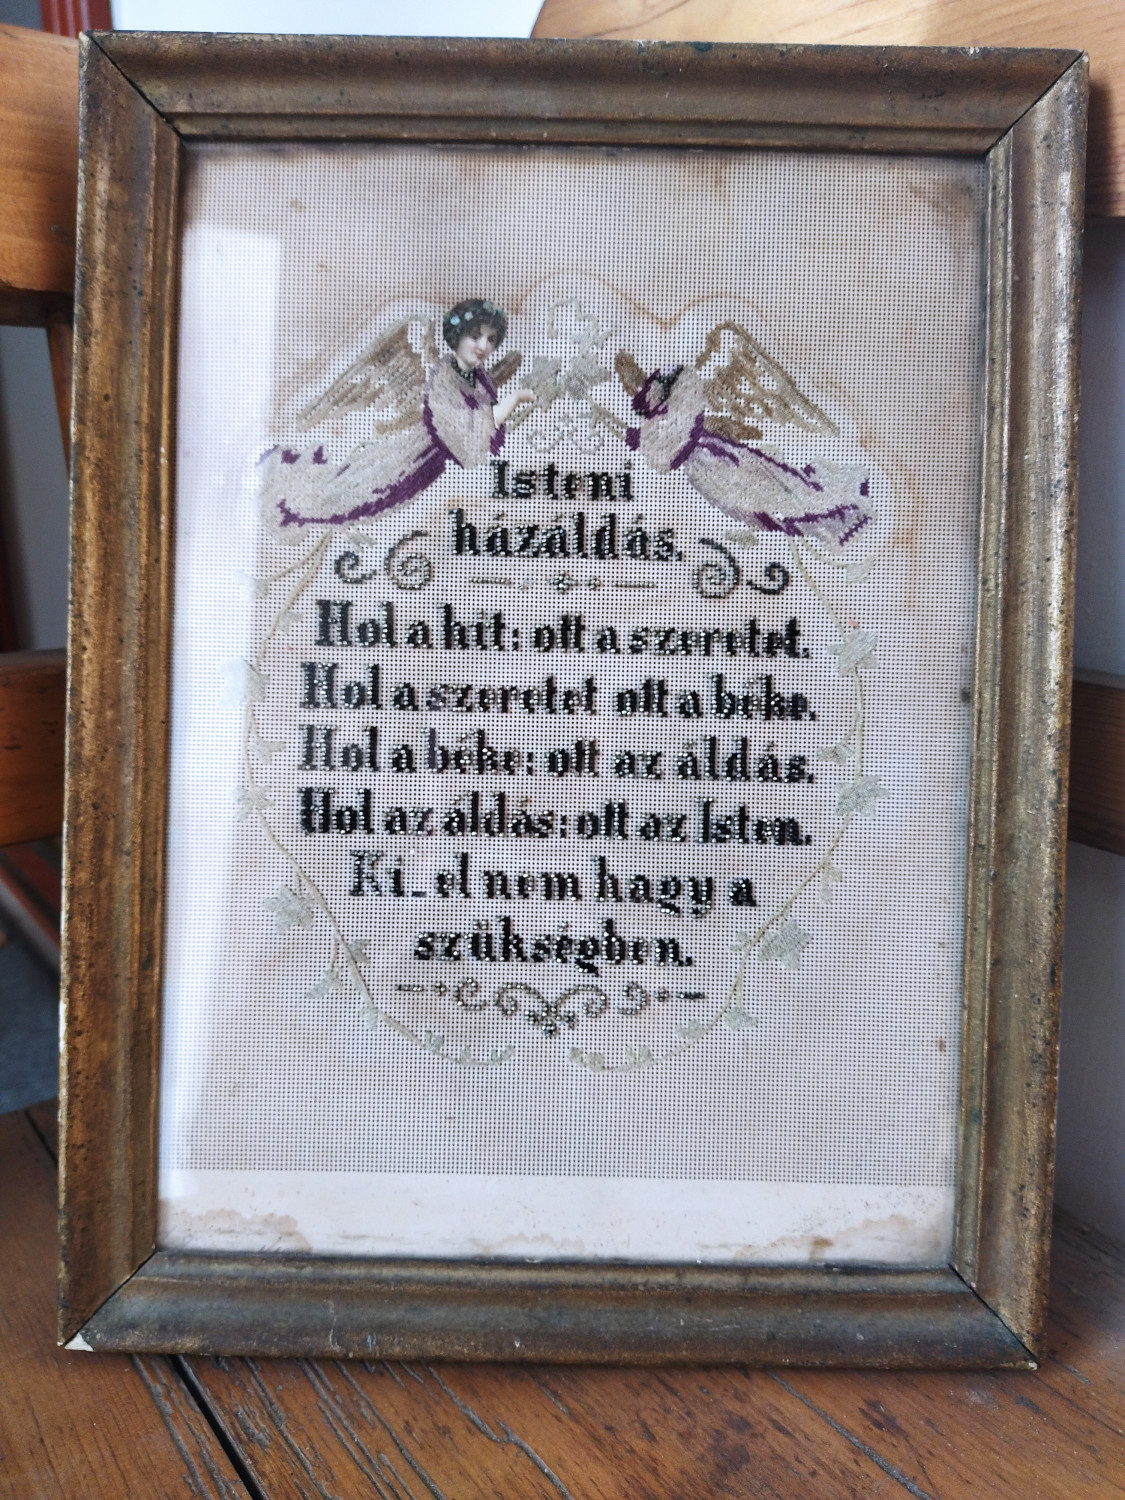 Isteni
házáldás.
Hol a hit: ott a szeretet.
Hol a szeretet ott a béke.
Hol a béke: ott az áldás.
Hol az áldás: ott az Isten.
Ki_ el nem hagy a
szükségben.